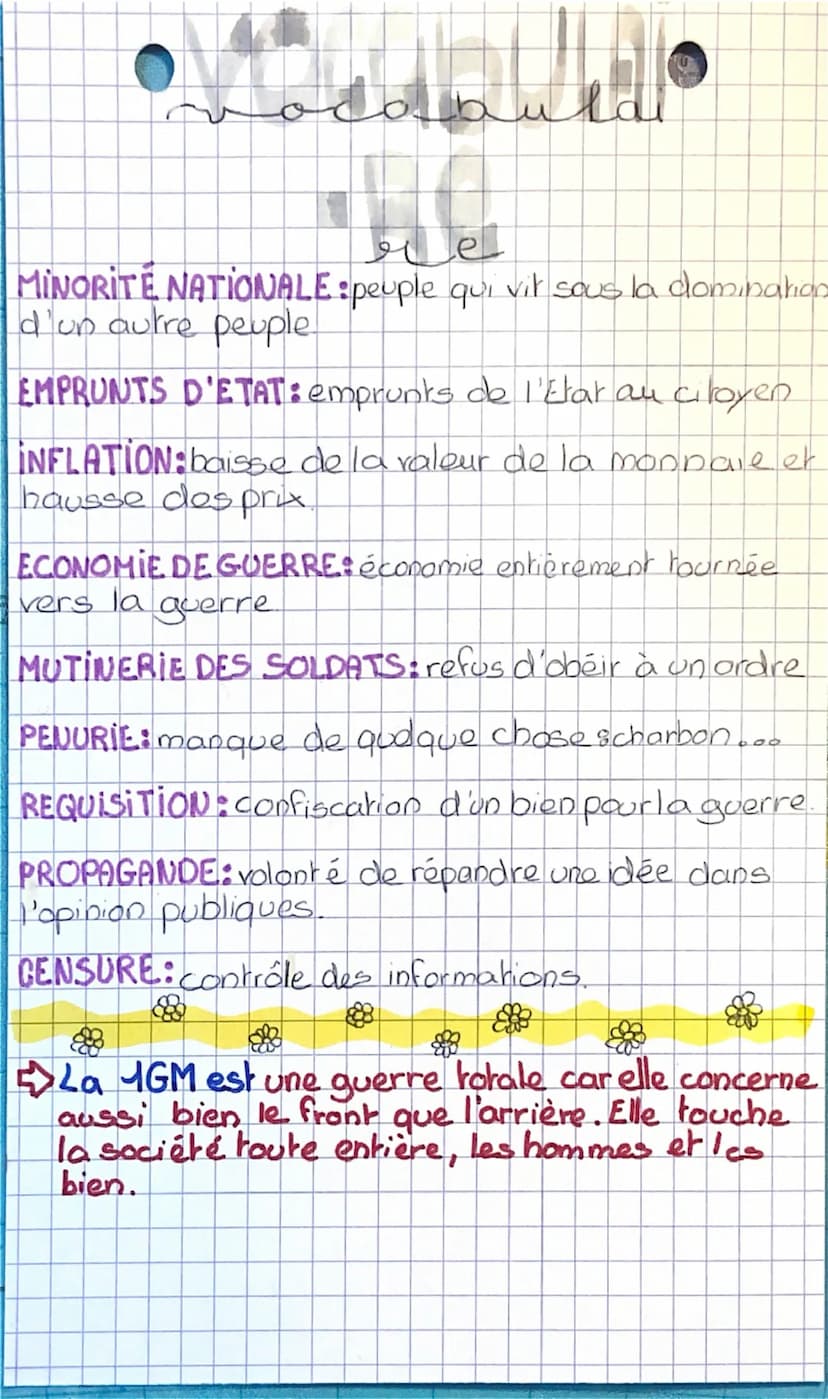 vocabulai
re
MINORITÉ NATIONALE : peuple qui vit sous la domination
d'un autre peuple.
EMPRUNTS D'ETAT : emprunts de l'Etat au citoyen
INFLATION : baisse de la valeur de la monnaie et
hausse des prix.
ECONOMIE DE GUERRE : économie entièrement tournée
vers la guerre
MUTINERIE DES SOLDATS : refus d'obéir à un ordre
PENURIE : manque de quelque chose : charbon...
REQUISITION : confiscation d'un bien pour la guerre.
PROPAGANDE : volonté de répandre une idée dans
l'opinion publiques.
CENSURE : contrôle des informations.
⇨ La 1GM est une guerre totale car elle concerne
aussi bien le front que l'arrière. Elle touche
la société toute entière, les hommes et les
bien.